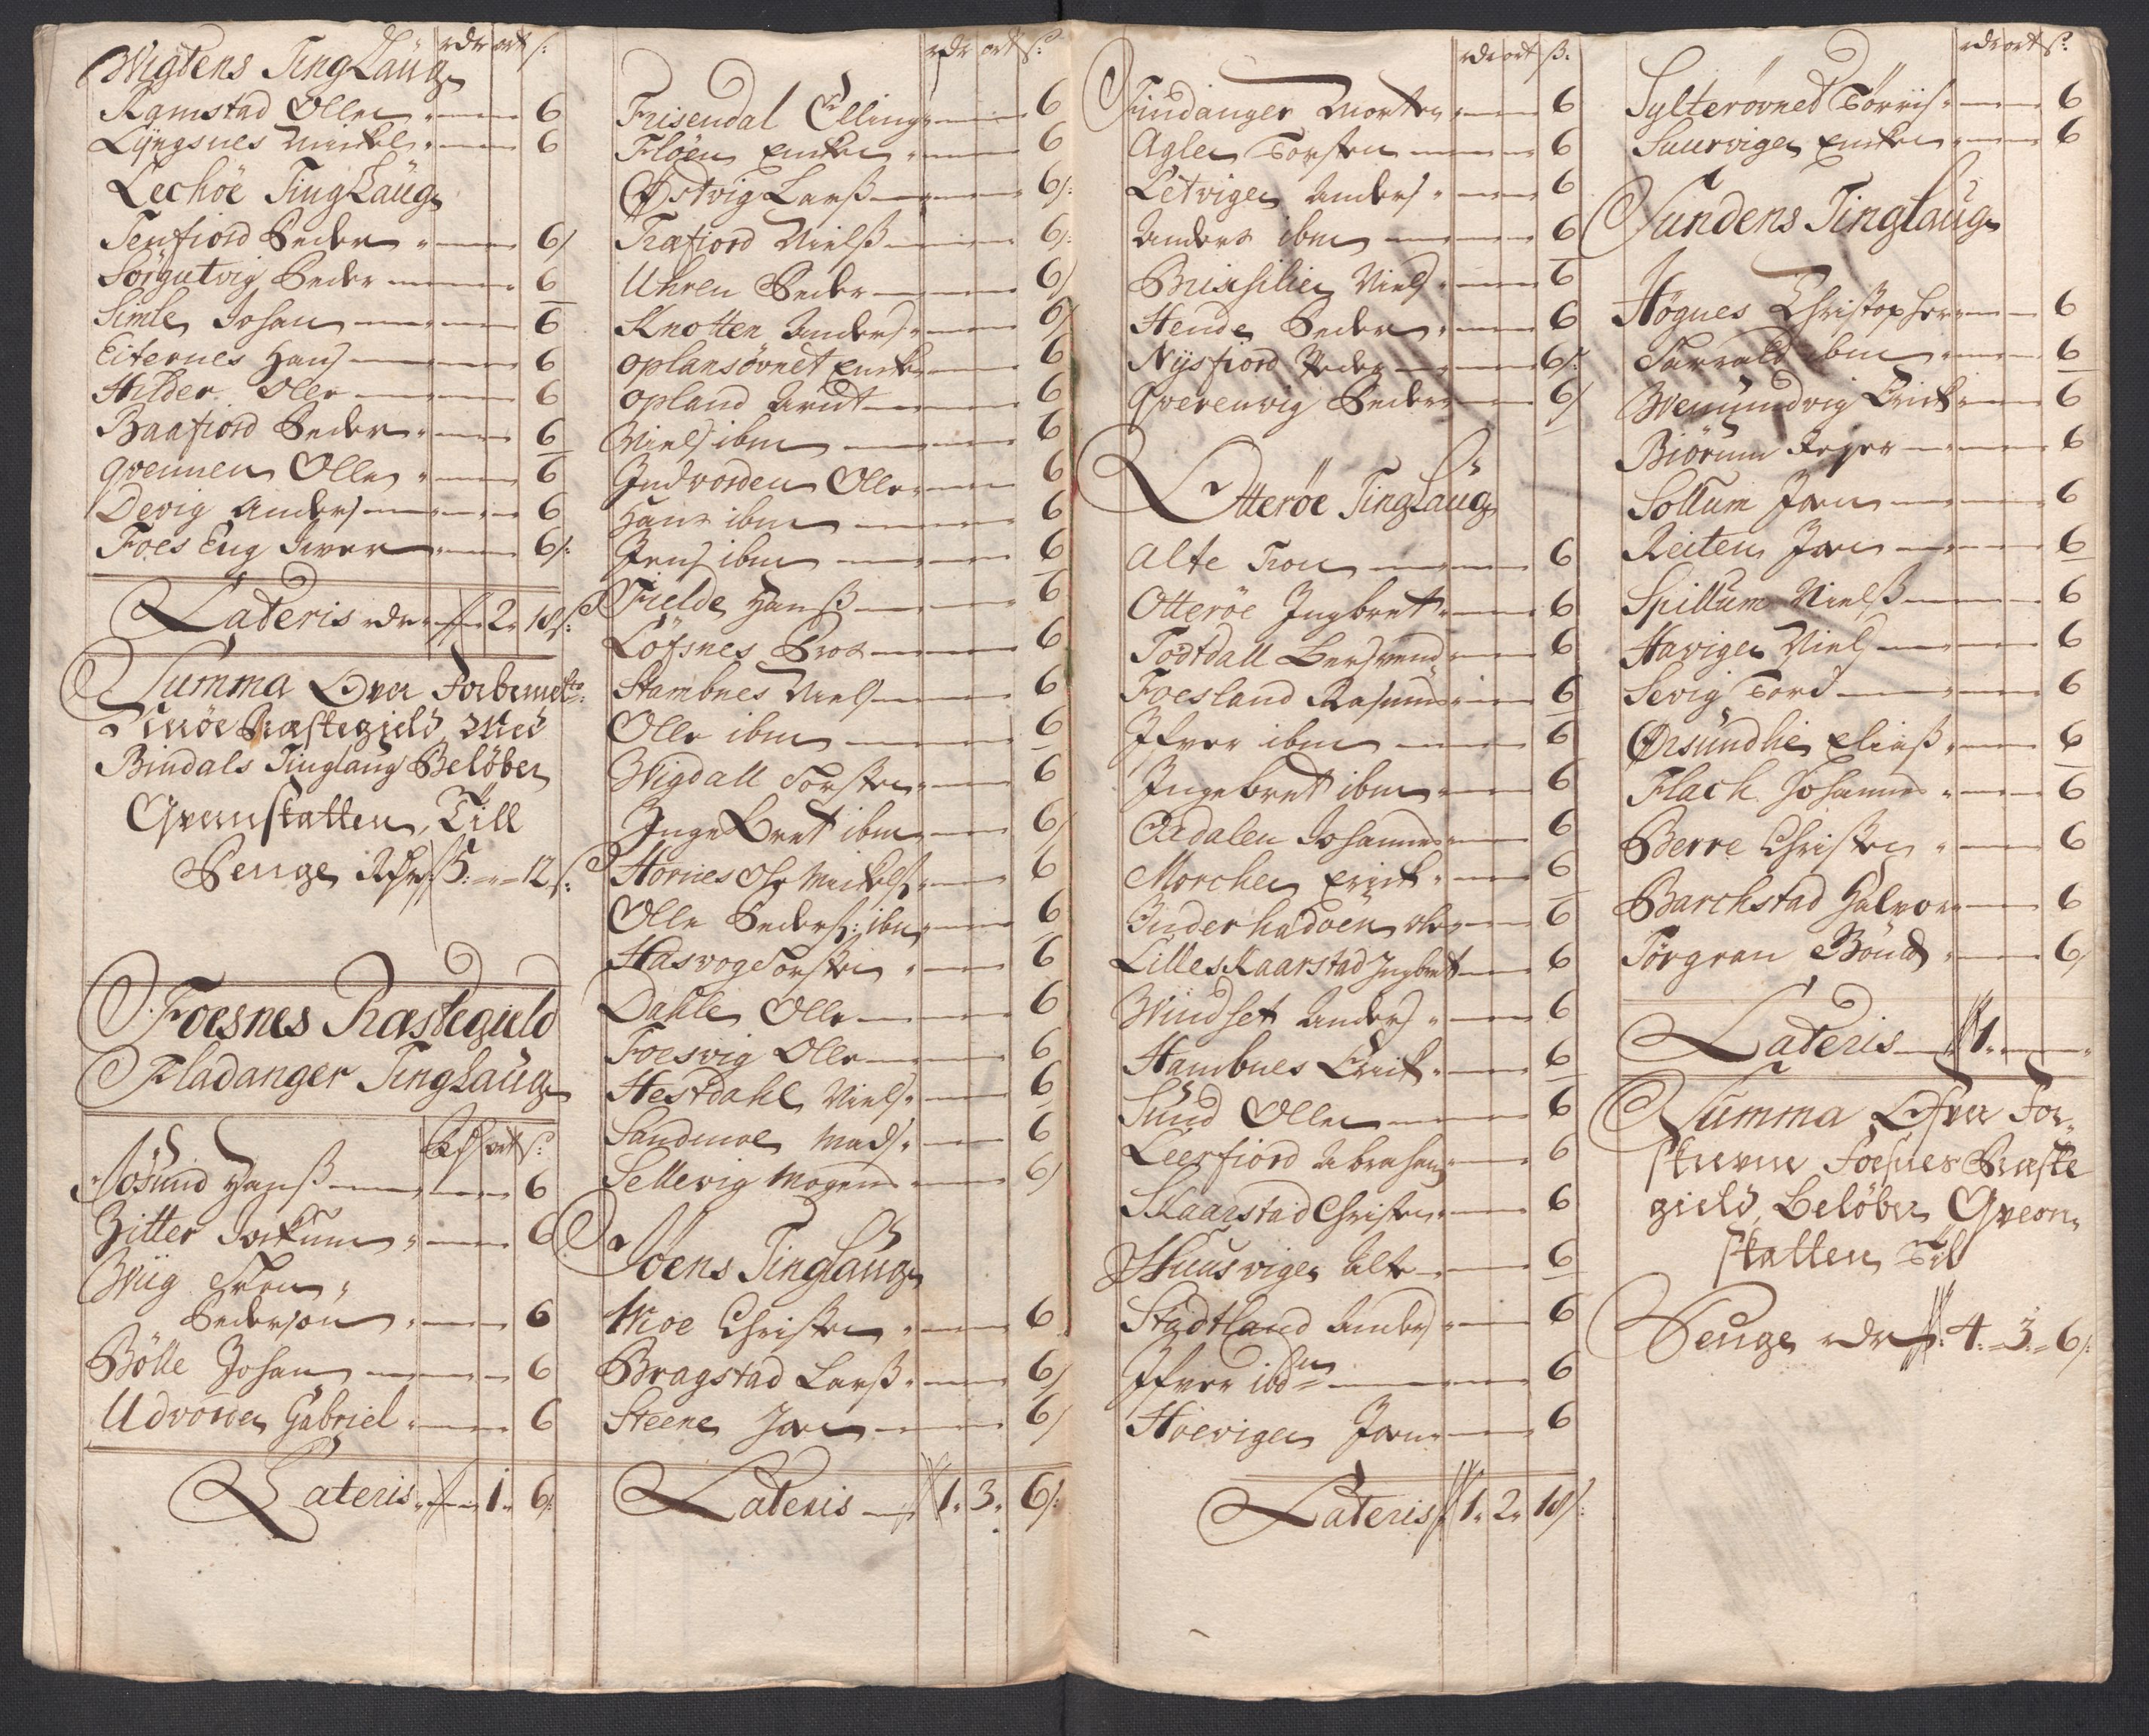 rdr ort s:
Wigtens TingLaug
Ramstad Olle 6
Lÿngsnes Mickel 6
Lechöe TingLaug
Tenfiord Peder 6
Sörgutvig Peder 6
Simle Johan 6
Eiternes Hans 6
Hilder Olle 6
Baafiord Peder 6
qvennen Olle 6
Devig Anders 6
Foes Eng Iver 6
Lateris rdr 2 18 s:
Summa Over Forbemelte
Præstegield Med
Bindals Tinglaug Beløber
Qvernskatten, Till
Penge Rdr 5: 12 s:
Foesnes Præstegield
Fladanger TingLaug
Rdr ort s:
Jösund Hanss 6
Zitter Jockum 6
Wiig
Pedersøn 6
Bölle Johan 6
Udvorden Gabriel 6
Lateris 1 6
rdr ort s:
Frisendal Elling 6
Flöen Encken 6
Østvig Larss 6
Træfiord Nielss 6
Uhren Peder 6
Knotten Anders 6
oplansövnet Encke 6
opland Arnt 6
Niels ibm 6
Indvorden Olle 6
Hans ibm 6
Jens ibm 6
Fielde Hanss 6
Löfsnes 6
Stambnes Niels 6
Olle ibm 6
Wigdall Torsten 6
IngeBret ibm 6
Hornes Ole Mickels 6
Olle Peders: ibm 6
Hasvog Torsten 6
Dahle Olle 6
Foesvig Olle 6
Hestdahl Niels 6
Sandmoe Mads 6
Sellevig Mogens 6
Joens TingLaug
Moe Christen 6
Bragstad Larss 6
Steene Jon 6
Lateris 1 3 6
rdr ort s:
Findanger Morten 6
Aglen Torsten 6
Letvigen Anders 6
Anders ibm 6
Brixsilie Niels 6
Hende Peder 6
Nÿsfiord Peder 6
Qverenvig Peder 6
Otteröe TingLaug
Alte Tron 6
Otteröe Ingbret 6
Todtdall Bersvend 6
Foesland Rasmus 6
Ifver ibm 6
Ingebret ibm 6
Ordalen Johannes 6
Morchen Erick 6
Inderhadöen Ole 6
LilleSkaarstad Ingbret 6
Windset Anders 6
Hambnes Erick 6
Sund Olle 6
Leerfiord Abraham 6
Skaarstad Christen 6
Huusvigen Alt 6
Stadtland Anders 6
Ifver ibdm 6
Hoevigen Jon 6
Lateris 1 2 18
rdr ort s:
Sylterövned Törris 6
Suurvigen Encken 6
Sundens Tinglaug
Högnes Christopher 6
Tarrald ibm 6
Wemundvig Erick 6
Biörum 6
Sollum Jon 6
Reiten Jon 6
Spillum Nielss 6
Havigen Niels 6
Sevig Tord 6
Ørsundlie Eliass 6
Flach Johannes 6
Berre Christen 6
Barchstad Halvor 6
Törgran Bönd 6
Lateris 1
Summa Ofver For-
skrevne Foesnes Præste
gield Beløber Qvern-
skatten Til
Penge rdr 4: 3: 6